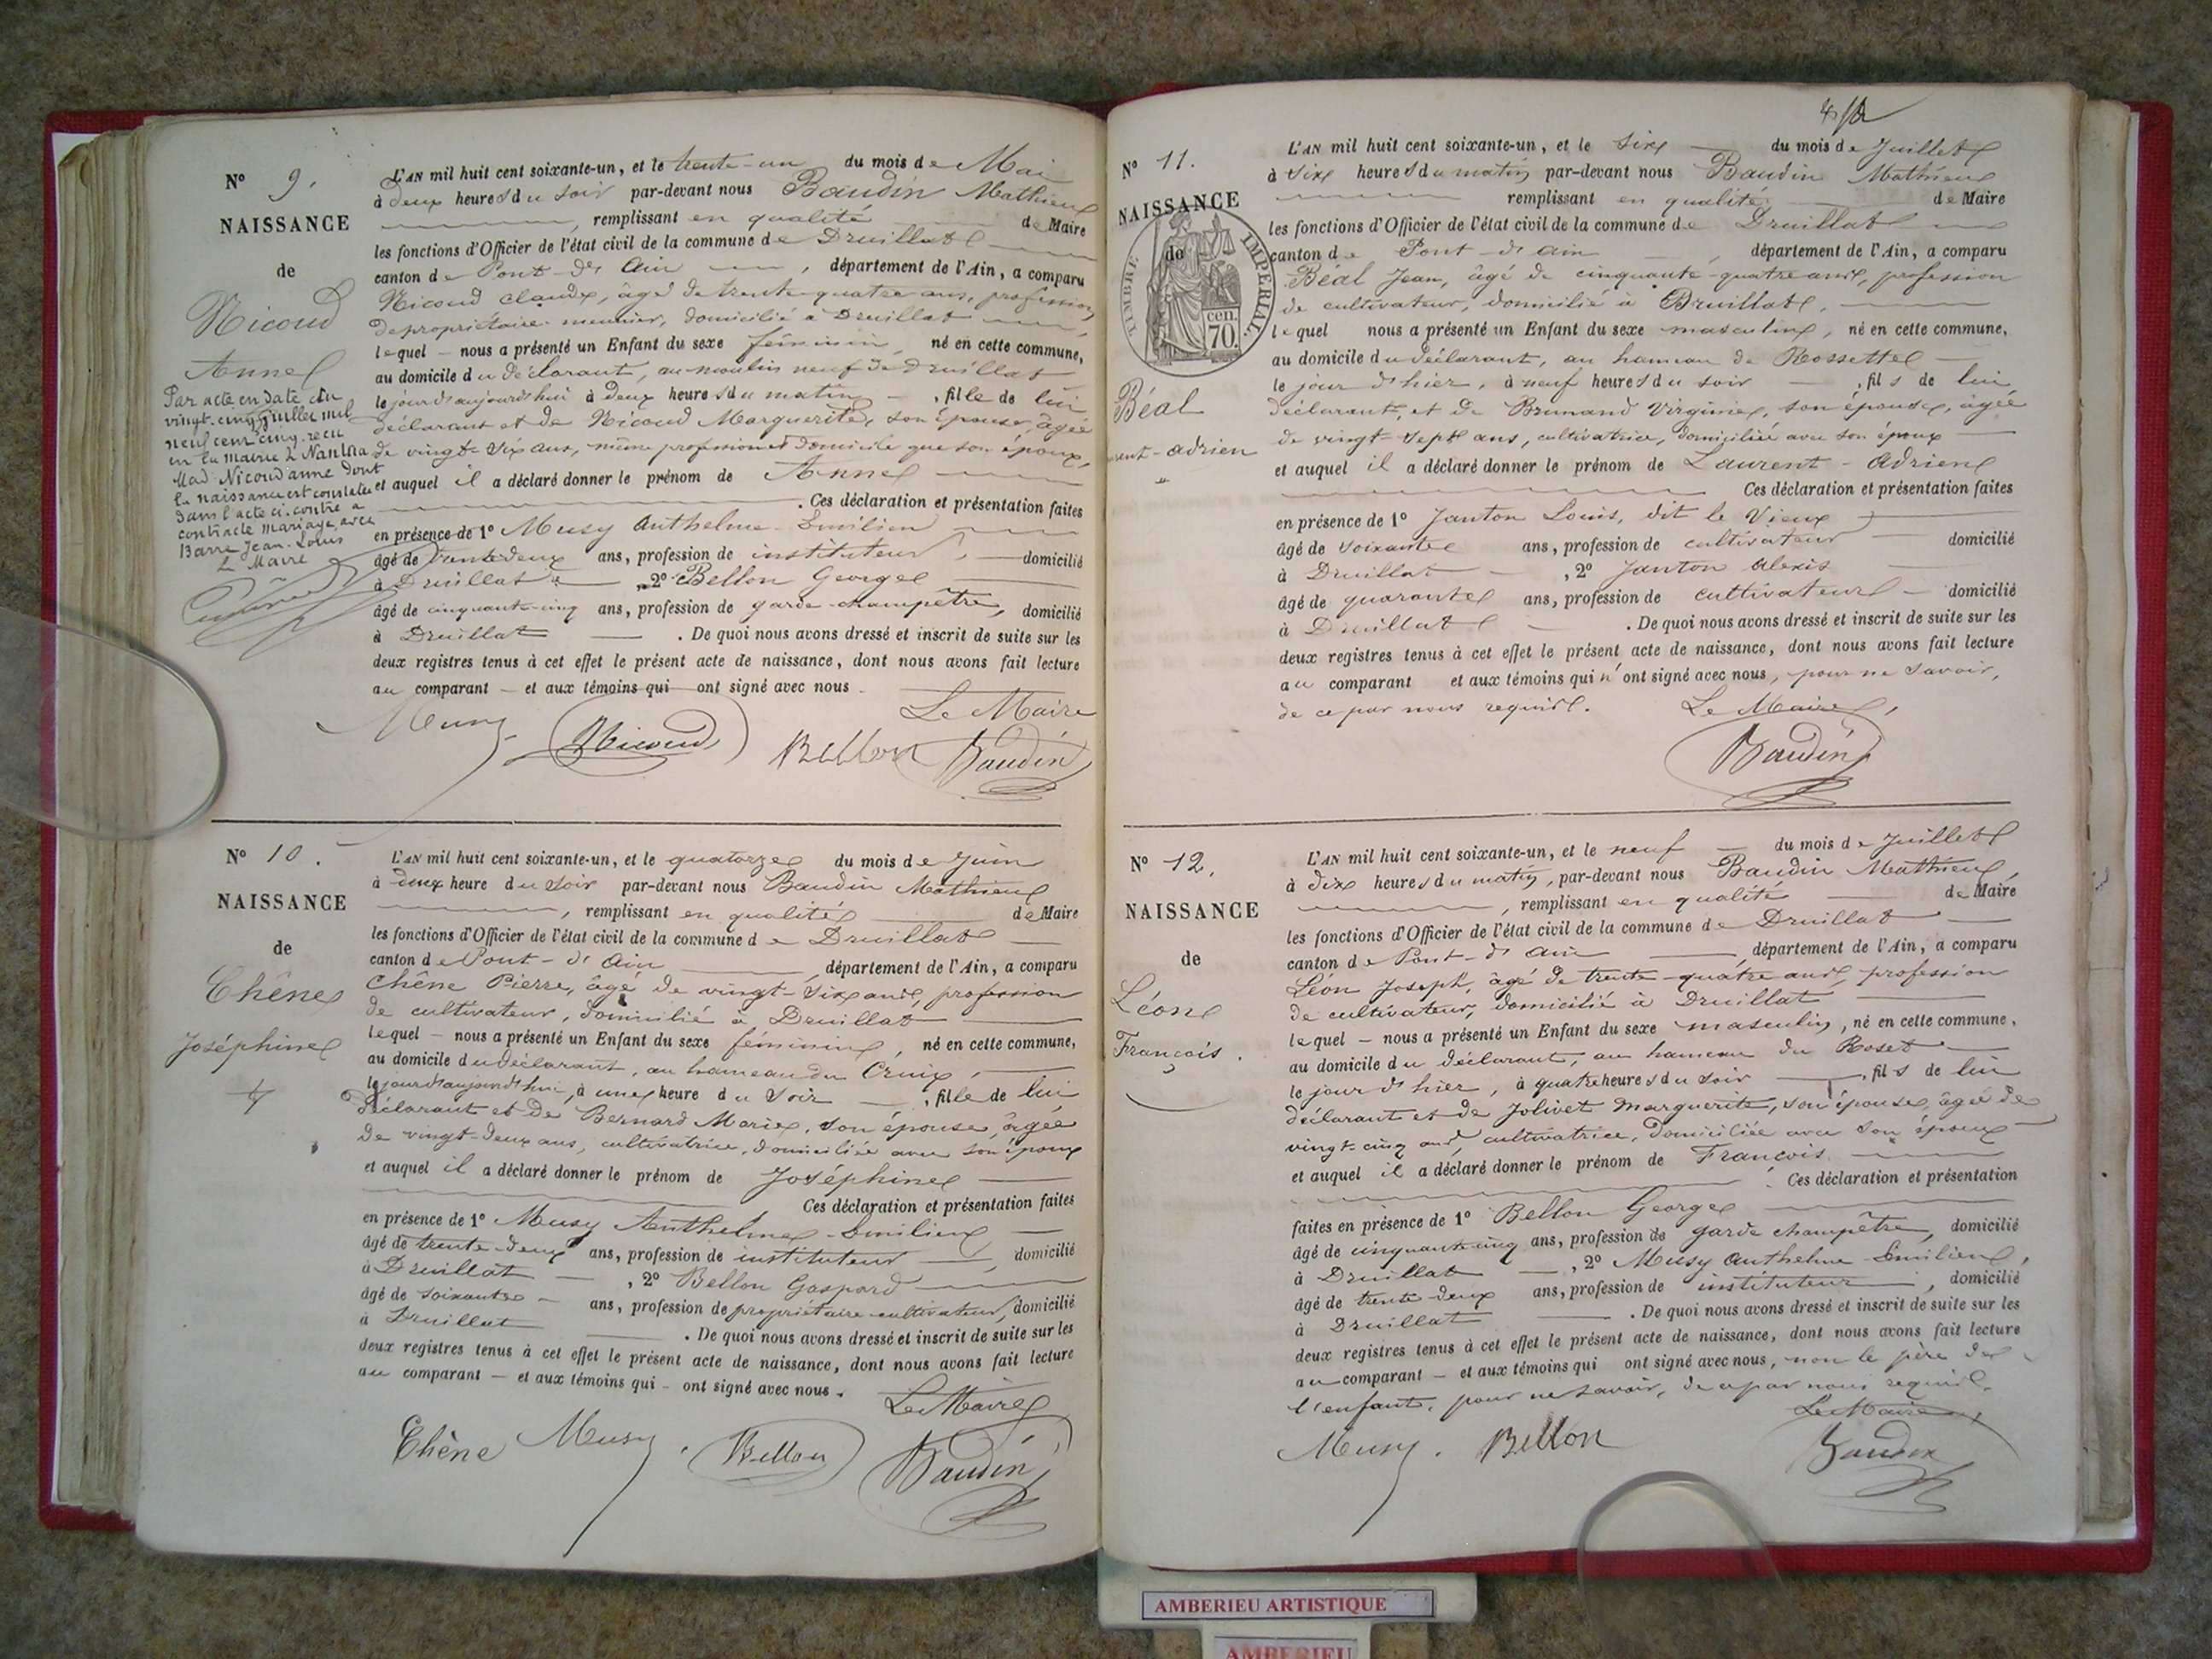 N° 9.
NAISSANCE
de
Nicoud
Anne
Par acte en date du
vingt-cinq Juillet mil
neuf cent cinq reçu
en la mairie de Nantua
Mad. Nicoud anne dont
la naissance est constatée
dans l'acte ci-contre a
contracté mariage avec
Barre Jean-Louis
L. Maire
L'AN mil huit cent soixante-un, et le trente-un du mois de Mai
à deux heures du soir par-devant nous Baudin Mathieu
, remplissant en qualité de Maire
les fonctions d'Officier de l'état civil de la commune de Druillat
canton de Pont-d'Ain , département de l'Ain, a comparu
Nicoud Claude, âgé de trente-quatre ans, profession
de propriétaire-meunier, domicilié à Druillat
lequel – nous a présenté un Enfant du sexe féminin, né en cette commune,
au domicile du déclarant, au moulin neuf de Druillat
le jour d'aujourd'hui à Deux heures du matin , fille de lui
déclarant et de Nicoud Marguerite, son épouse, âgée
de vingt-six ans, même profession et domicile que son époux,
et auquel il a déclaré donner le prénom de Anne
. Ces déclaration et présentation faites
en présence de 1° Musy Anthelme-Emilien
âgé de trente-deux ans, profession de instituteur, domicilié
à Druillat , 2° Bellon George
âgé de cinquante-cinq ans, profession de garde-champêtre, domicilié
à Druillat . De quoi nous avons dressé et inscrit de suite sur les
deux registres tenus à cet effet le présent acte de naissance, dont nous avons fait lecture
au comparant – et aux témoins qui ont signé avec nous.
Le Maire
Musy Nicoud Bellon Baudin
N° 10.
NAISSANCE
de
Chêne
Joséphine
L'AN mil huit cent soixante-un, et le quatorze du mois de Juin
à deux heure du soir par-devant nous Baudin Mathieu
, remplissant en qualité de Maire
les fonctions d'Officier de l'état civil de la commune de Druillat
canton de Pont-d'Ain département de l'Ain, a comparu
Chêne Pierre, âgé de vingt-six ans, profession
de cultivateur, domicilié à Druillat
lequel – nous a présenté un Enfant du sexe féminin, né en cette commune,
au domicile du déclarant, au hameau du Cruix,
le jour d'aujourd'hui, à une heure du soir , fille de lui
déclarant et de Bernard Marie, son épouse, âgée
de vingt-deux ans, cultivatrice, domiciliée avec son époux
et auquel il a déclaré donner le prénom de Joséphine
Ces déclaration et présentation faites
en présence de 1° Musy Anthelme-Emilien
âgé de trente-deux ans, profession de instituteur, domicilié
à Druillat , 2° Bellon Gaspard
âgé de soixante ans, profession de propriétaire-cultivateur, domicilié
à Druillat . De quoi nous avons dressé et inscrit de suite sur les
deux registres tenus à cet effet le présent acte de naissance, dont nous avons fait lecture
au comparant – et aux témoins qui – ont signé avec nous.
Le Maire
Chêne Musy Bellon Baudin
N° 11.
NAISSANCE
de
TIMBRE IMPERIAL
70. cen.
Béal
-adrien
L'AN mil huit cent soixante-un, et le six du mois de Juillet
à six heures du matin par-devant nous Baudin Mathieu
remplissant en qualité de Maire
les fonctions d'Officier de l'état civil de la commune de Druillat
canton de Pont-d'Ain , département de l'Ain, a comparu
Béal Jean, âgé de cinquante-quatre ans, profession
de cultivateur, domicilié à Druillat,
lequel nous a présenté un Enfant du sexe masculin, né en cette commune,
au domicile du déclarant, au hameau de Rossettel
le jour d'hier, à neuf heures du soir , fils de lui
déclarant, et de Brunand Virginie, son épouse, âgée
de vingt-sept ans, cultivatrice, domiciliée avec son époux
et auquel il a déclaré donner le prénom de Laurent-Adrien
Ces déclaration et présentation faites
en présence de 1° Janton Louis, dit le Vieux
âgé de soixante ans, profession de cultivateur domicilié
à Druillat , 2° Janton Alexis
âgé de quarante ans, profession de cultivateur – domicilié
à Druillat . De quoi nous avons dressé et inscrit de suite sur les
deux registres tenus à cet effet le présent acte de naissance, dont nous avons fait lecture
au comparant et aux témoins qui n'ont signé avec nous, pour ne savoir,
de ce par nous requis.
Le Maire,
Baudin
N° 12.
NAISSANCE
de
Léon
François.
L'AN mil huit cent soixante-un, et le neuf du mois de Juillet
à dix heures du matin, par-devant nous Baudin Mathieu,
, remplissant en qualité de Maire
les fonctions d'Officier de l'état civil de la commune de Druillat
canton de Pont-d'Ain département de l'Ain, a comparu
Léon Joseph, âgé de trente-quatre ans, profession
de cultivateur, domicilié à Druillat
lequel – nous a présenté un Enfant du sexe masculin, né en cette commune,
au domicile du déclarant, au hameau du Roset
le jour d'hier, à quatre heures du soir , fils de lui
déclarant et de Jolivet Marguerite, son épouse, âgée de
vingt-cinq ans, cultivatrice, domiciliée avec son époux
et auquel il a déclaré donner le prénom de François
. Ces déclaration et présentation
faites en présence de 1° Bellon George
âgé de cinquante-cinq ans, profession de garde champêtre, domicilié
à Druillat , 2° Musy Anthelme-Emilien,
âgé de trente-deux ans, profession de instituteur, domicilié
à Druillat . De quoi nous avons dressé et inscrit de suite sur les
deux registres tenus à cet effet le présent acte de naissance, dont nous avons fait lecture
au comparant – et aux témoins qui ont signé avec nous, non le père de
l'enfant, pour ne savoir, de ce par nous requis.
Le Maire,
Musy. Bellon Baudin
AMBERIEU ARTISTIQUE
AMBERIEU